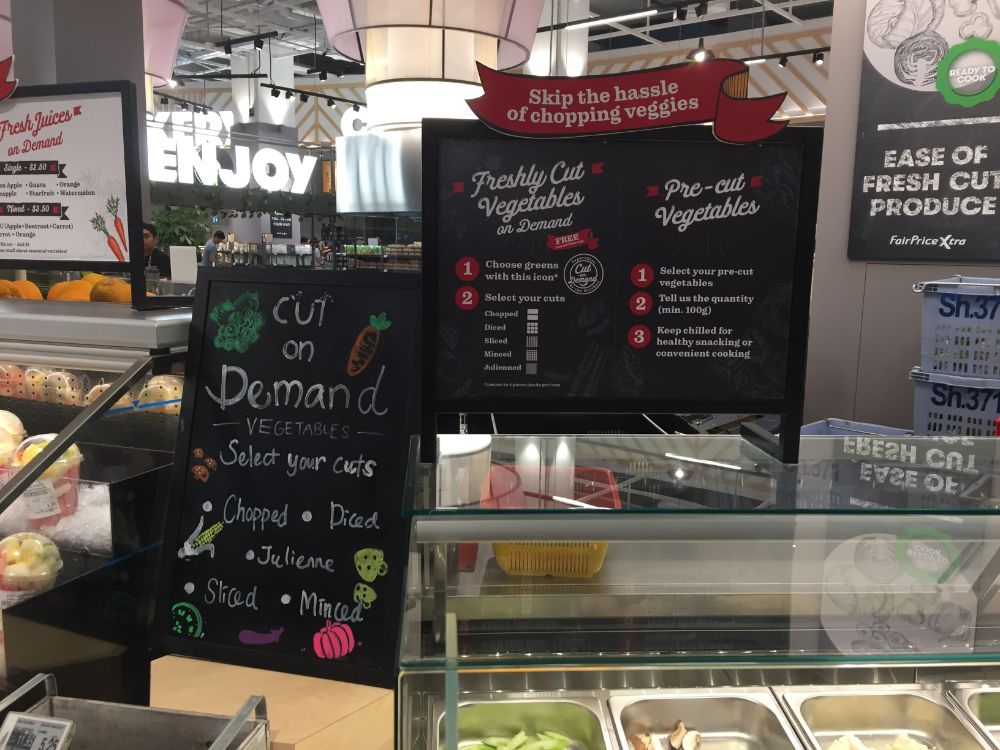 Fresh Juices
on Demand
Single - $2.50
Apple • Guava • Orange
• Starfruit • Watermelon
Mixed - $3.50
(Apple+Beetroot+Carrot)
+ Orange
ENJOY
CUT
on
Demand
VEGETABLES
Select your cuts
• Chopped • Diced
• Julienne
• Sliced • Minced
Skip the hassle
of chopping veggies
Freshly Cut
Vegetables
on Demand
FREE
1 Choose greens
with this icon*
Cut
on Demand
2 Select your cuts
Chopped
Diced
Sliced
Minced
Julienned
*Limited to 5 pieces/packs per item
Pre-cut
Vegetables
1 Select your pre-cut
vegetables
2 Tell us the quantity
(min. 100g)
3 Keep chilled for
healthy snacking or
convenient cooking
READY TO
COOK
EASE OF
FRESH CUT
PRODUCE
FairPrice Xtra
Sh.37
Sh.371